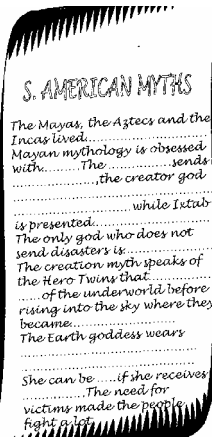 S. AMERICAN MYTHS
The Mayas, the Aztecs and the
Incas lived..............................
Mayan mythology is obsessed
with.........The ................sends
......................,the creator god
..................................................
..............................while Ixtab
is presented............................
The only god who does not
send disasters is....................
The creation myth speaks of
the Hero Twins that...............
......of the underworld before
rising into the sky where they
became...........................
The Earth goddess wears
..........................................
..........................................
She can be .....if she receives
...............The need for
victims made the people
fight a lot.